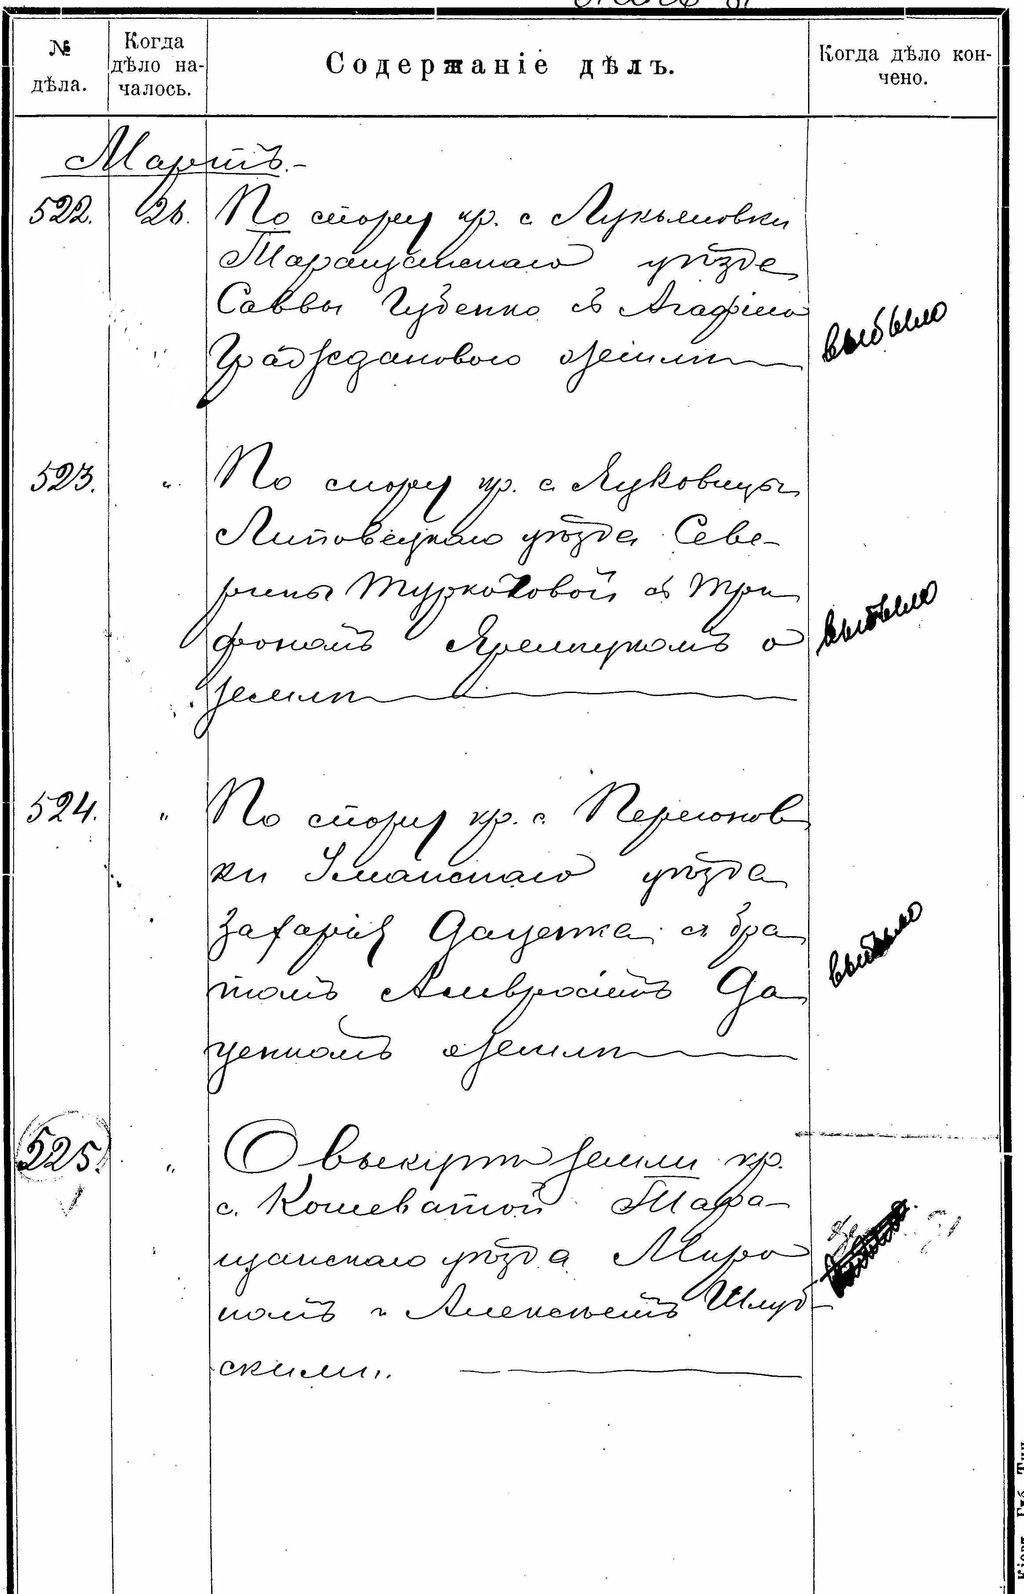 № дѣла.
Когда дѣло на-
чалось.
Содержаніе дѣлъ.
Когда дѣло кон-
чено.
Мартъ.
522. 26. По спору кр. с. Лукьяновки
Таращанскаго уѣзда
Саввы Губенко съ Агафіею
Граждановою о землѣ
выбыло
523. " По спору кр. с. Яцковицы
Липовецкаго уѣзда Севе-
рины Туркотовой съ Три
фономъ Яремчукомъ о
землѣ
выбыло
524. " По спору кр. с. Перегонов
ки Уманскаго уѣзда
Захарія Даценка съ бра
томъ Амвросіемъ Да
ценкомъ о землѣ
выбыло
525. " О выкупѣ земли кр.
с. Кошеватой Тара-
щанскаго уѣзда Миро
номъ и Алексѣемъ Шлуб-
скими.